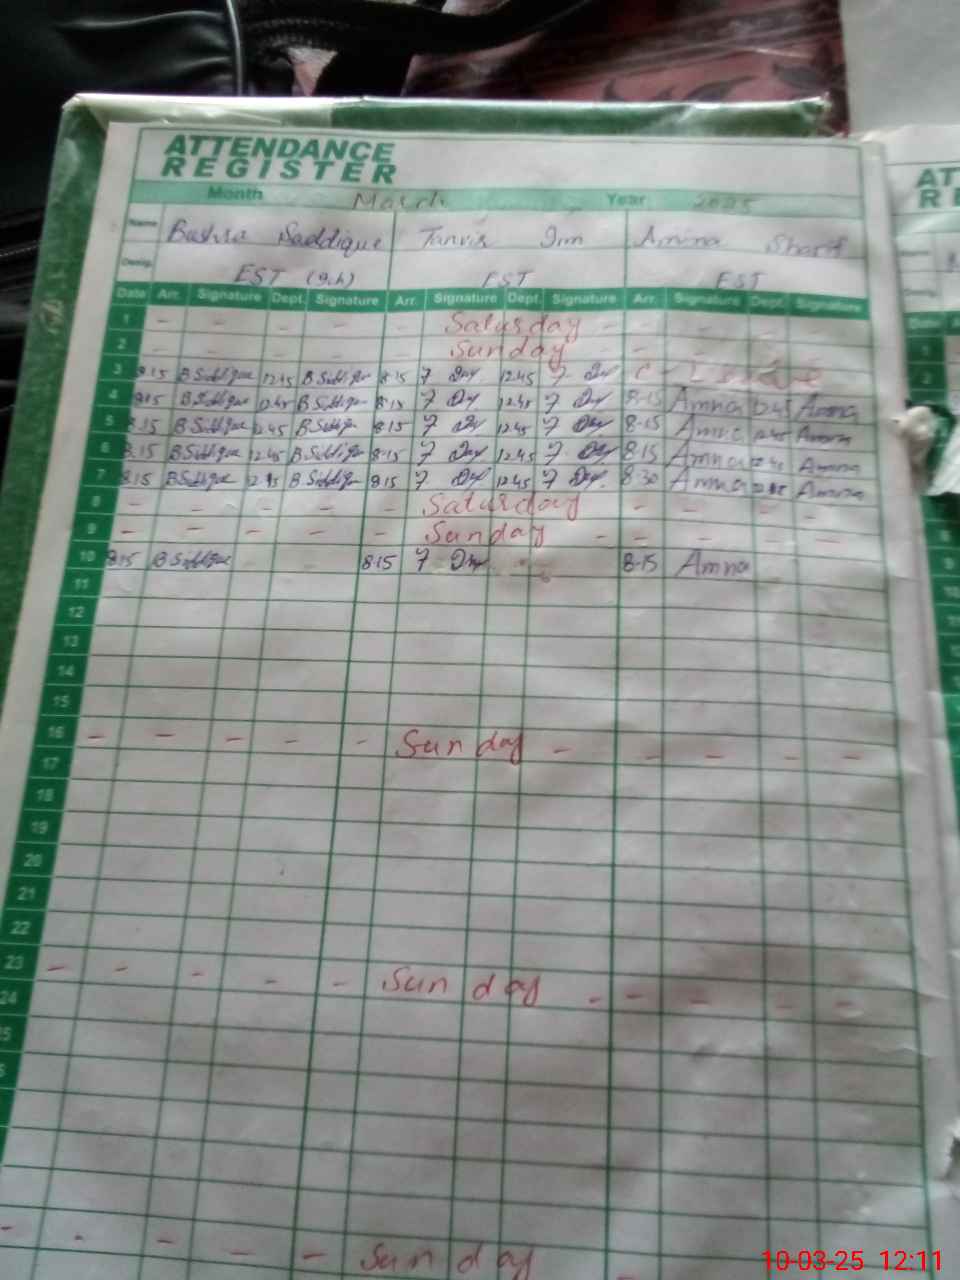 ATTENDANCE
REGISTER
Month March Year 2025
Name Bushra Saddique Tanvir Amina Sharif
Desig. EST (Sch) EST EST
Date Arr. Signature Dept. Signature Arr. Signature Dept. Signature Arr. Signature Dept. Signature
1 - - - - - Saturday - - - - -
2 - - - - - Sunday - - - -
3 8:15 B Siddique 12:45 B Siddique 8:15 12:45 C - Leave
4 8:15 B Siddique 12:45 B Siddique 8:15 12:45 8:15 Amna 12:45 Amna
5 8:15 B Siddique 12:45 B Siddique 8:15 12:45 8:15 Amna 12:45 Amna
6 8:15 B Siddique 12:45 B Siddique 8:15 12:45 8:15 Amna 12:45 Amna
7 8:15 B Siddique 12:45 B Siddique 8:15 12:45 8:30 Amna Amna
8 - - - - - Saturday - - - -
9 - - - - - Sunday - - - - -
10 8:15 B Siddique 8:15 8:15 Amna
11
12
13
14
15
16 - - - - - Sunday - - - - -
17
18
19
20
21
22
23 - - - - - Sunday - - - - -
24
- - - - - Sunday -
10-03-25 12:11